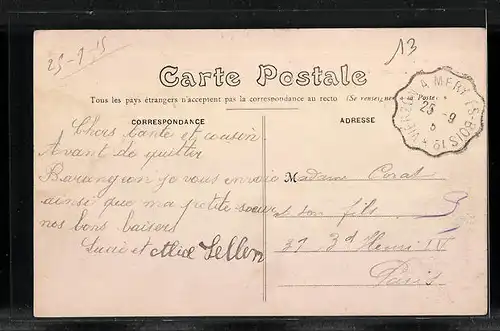 25-9-15
13
Carte Postale
Tous les pays étrangers n'acceptent pas la correspondance au recto (Se renseigner à la Poste)
CORRESPONDANCE
ADRESSE
Chers tante et cousin
Avant de quitter
je vous envoie
ainsi que ma petite soeur
nos bons baisers
Lucie et Alice
Madame Corat
et son fils
31 Bd Henri IV
Paris
VIERZON A MERY-ES-BOIS
25 -9